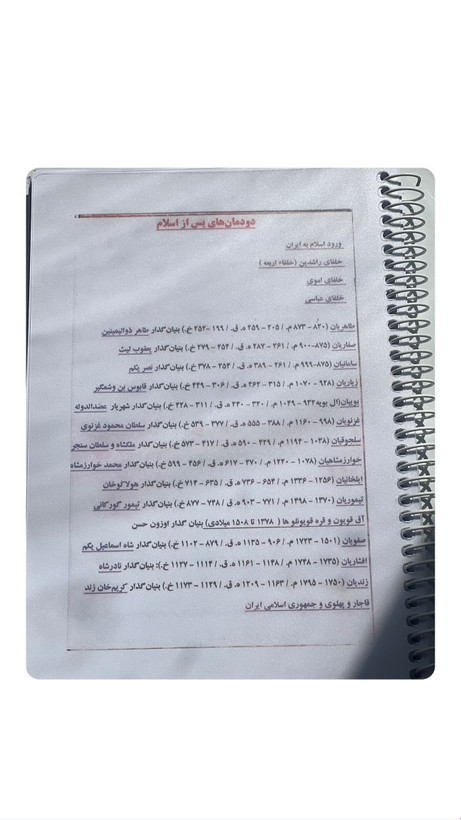 دودمان‌های پس از اسلام
ورود اسلام به ایران
خلفای راشدین (خلفاء اربعه )
خلفای اموی
خلفای عباسی
طاهریان (۸۲۰ – ۸۷۳ م. / ۲۰۵ – ۲۵۹ ه. ق. / ۱۹۹ – ۲۵۲ خ.) بنیان‌گذار طاهر ذوالیمینین
صفاریان (۸۷۵–۹۰۰ م. / ۲۶۱ – ۲۸۷ ه. ق. / ۲۵۴ – ۲۷۹ خ.) بنیان‌گذار یعقوب لیث
سامانیان (۸۷۵–۹۹۹ م. / ۲۶۱ – ۳۸۹ ه. ق. / ۲۵۴ – ۳۷۸ خ.) بنیان‌گذار نصر یکم
زیاریان (۹۲۸ – ۱۰۷۰ م. / ۳۱۵ – ۴۶۲ ه. ق. / ۳۰۶ – ۴۴۹ خ.) بنیان‌گذار قابوس بن وشمگیر
بوییان(آل بویه۹۳۲ – ۱۰۴۹ م. / ۳۲۰ – ۴۴۰ ه. ق. / ۳۱۱ – ۴۲۸ خ.) بنیان‌گذار شهریار عضدالدوله
غزنویان (۹۹۸ – ۱۱۶۰ م. / ۳۸۸ – ۵۵۵ ه. ق. / ۳۷۷ – ۵۳۹ خ.) بنیان‌گذار سلطان محمود غزنوی
سلجوقیان (۱۰۳۸ – ۱۱۹۴ م. / ۴۲۹ – ۵۹۰ ه. ق. / ۴۱۷ – ۵۷۳ خ.) بنیان‌گذار ملکشاه و سلطان سنجر
خوارزمشاهیان (۱۰۷۸ – ۱۲۲۰ م. / ۴۷۰ – ۶۱۷ ه. ق. / ۴۵۶ – ۵۹۹ خ.) بنیان‌گذار محمد خوارزمشاه
ایلخانیان (۱۲۵۶ – ۱۳۳۶ م. / ۶۵۴ – ۷۳۶ ه. ق. / ۶۳۵ – ۷۱۴ خ.) بنیان‌گذار هولاکوخان
تیموریان (۱۳۷۰ – ۱۴۹۸ م. / ۷۷۱ – ۹۰۳ ه. ق. / ۷۴۸ – ۸۷۷ خ.) بنیان‌گذار تیمور گورکانی
آق قویون و قره قویونلو ها ( ۱۳۷۸ تا ۱۵۰۸ میلادی) بنیان گذار اوزون حسن
صفویان (۱۵۰۱ – ۱۷۲۲ م. / ۹۰۶ – ۱۱۳۵ ه. ق. / ۸۷۹ – ۱۱۰۲ خ.) بنیان‌گذار شاه اسماعیل یکم
افشاریان (۱۷۳۵ – ۱۷۴۸ م. / ۱۱۴۸ – ۱۱۶۱ ه. ق. / ۱۱۱۴ – ۱۱۲۷ خ.): بنیان‌گذار نادرشاه
زندیان (۱۷۵۰ – ۱۷۹۵ م. / ۱۱۶۳ – ۱۲۰۹ ه. ق. / ۱۱۲۹ – ۱۱۷۳ خ.) بنیان‌گذار کریم‌خان زند
قاجار و پهلوی و جمهوری اسلامی ایران